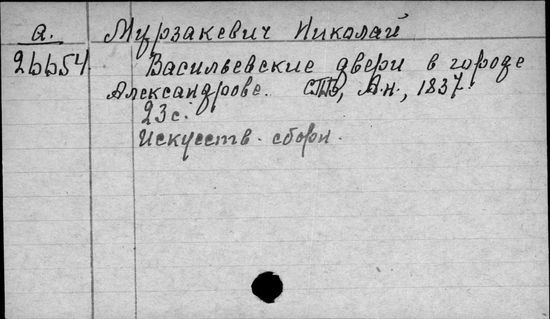 а. Мурзакевич Николай
26654 Васильевские двери в городе
Александрове. СПБ, Ан., 1837.
23с.
Искусств. сборн.